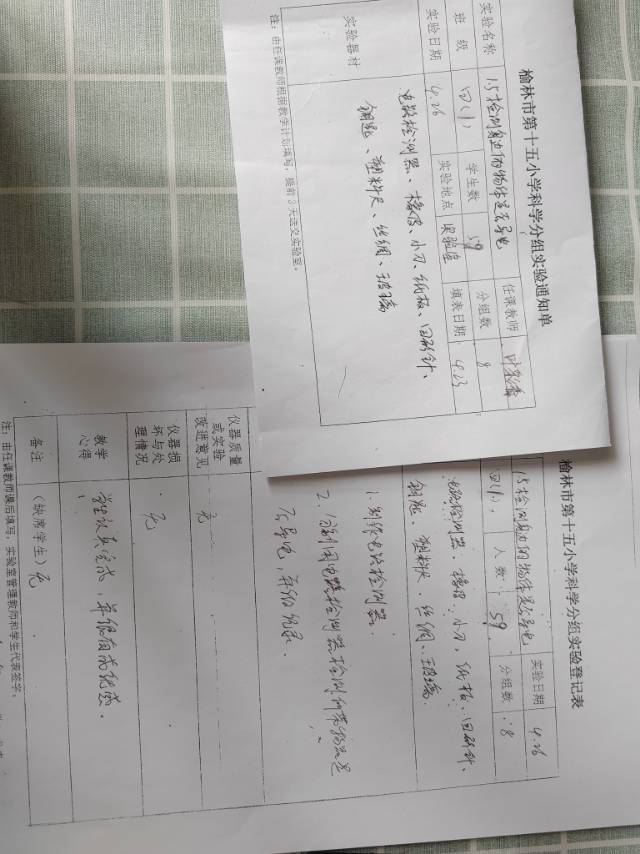 榆林市第十五小学科学分组实验通知单
实验名称 15检测身边的物体是否导电 任课教师
班 级 四(1) 学生数 59 分组数 8
实验日期 4.26 实验地点 实验室 填表日期 4.23
实验器材
电路检测器、橡皮、小刀、纸板、回形针、
钥匙、塑料尺、丝绸、玻璃
注：由任课教师根据教学计划填写，提前3天送交实验室。
榆林市第十五小学科学分组实验登记表
15检测身边的物体是否导电 实验日期 4.26
四(1) 人 数 59 分组数 8
电路检测器、橡皮、小刀、纸板、回形针、
钥匙、塑料尺、丝绸、玻璃.
1.制作电路检测器.
2.利用电路检测器检测所带物品是
否导电，并做记录.
仪器质量
或实验
改进意见
无
仪器损
坏与处
理情况
无
教学
心得
学生认真完成，并很有成就感.
备注 (缺席学生) 无
注：由任课教师课后填写，实验室管理教师和学生代表签字。